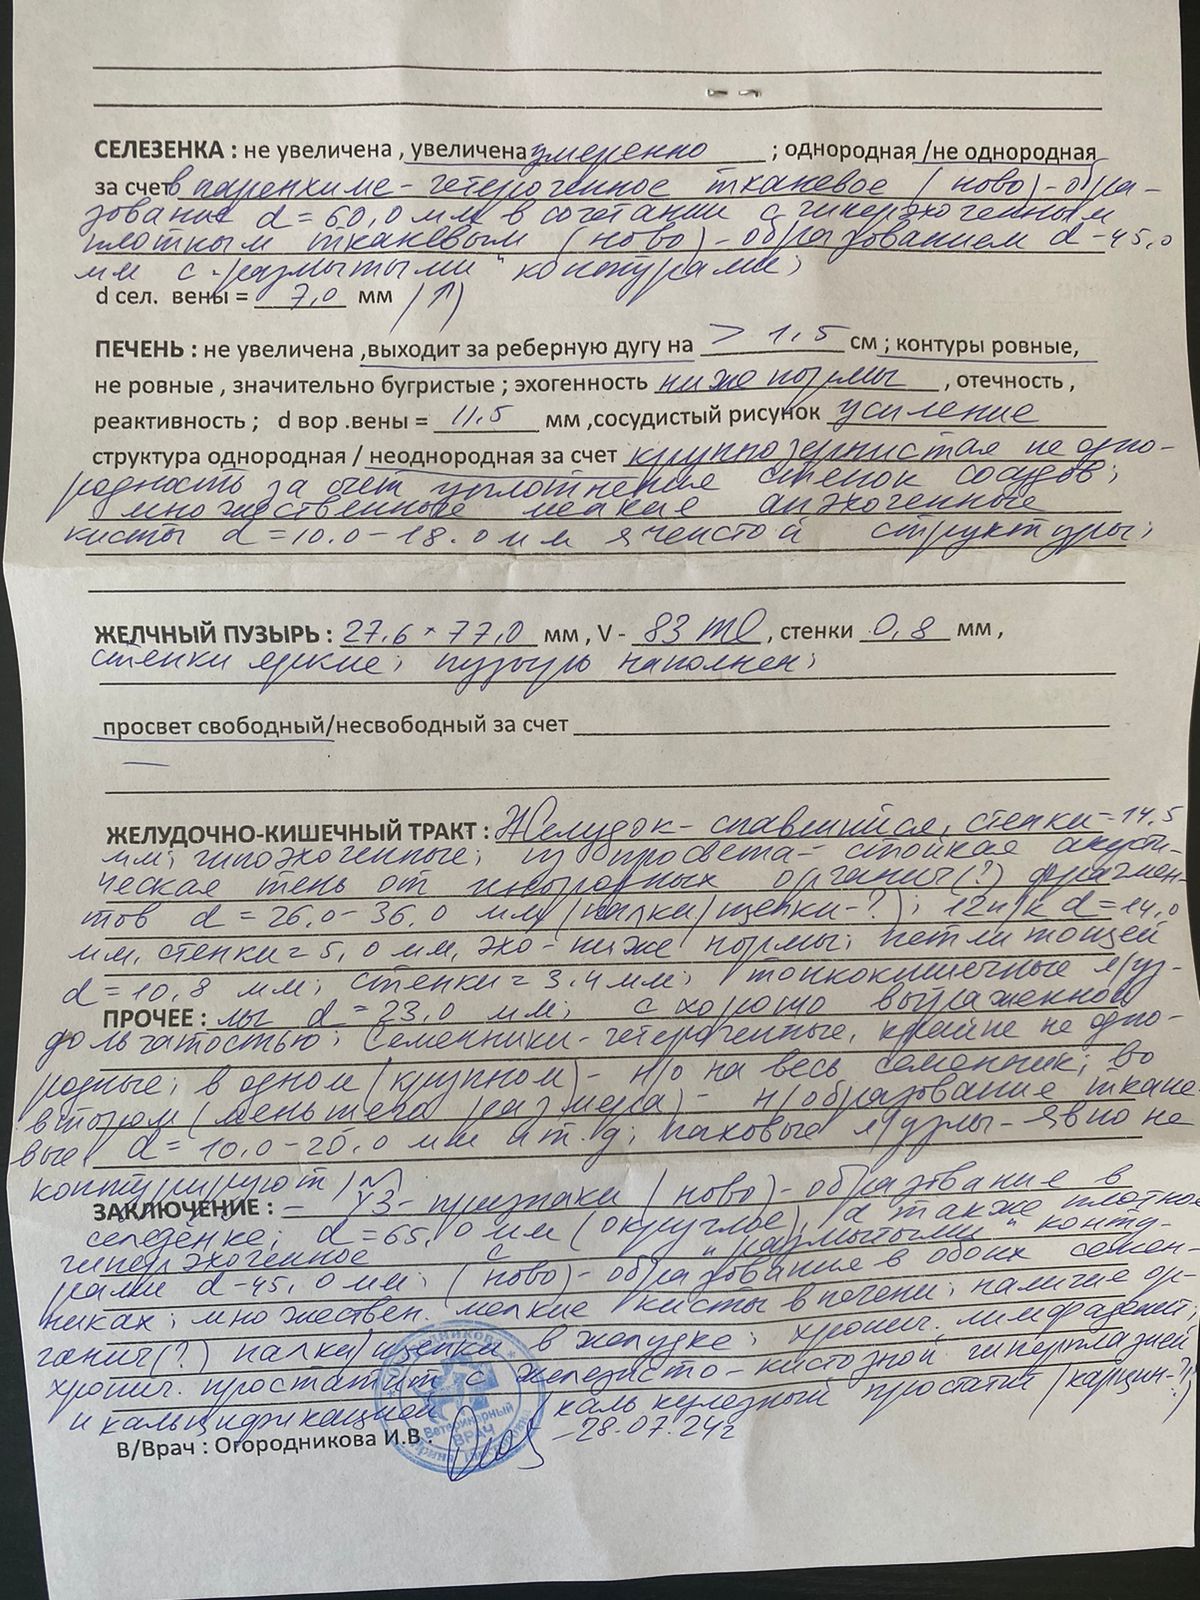 СЕЛЕЗЕНКА : не увеличена , увеличена умеренно ; однородная /не однородная
за счет в паренхиме - гетерогенное тканевое (ново)-обра-
зование d = 60,0 мм в сочетании с гиперэхогенным
плотным тканевым (ново)-образованием d-45,0
мм с "размытыми" контурами;
d сел. вены = 7,0 мм (↑)
ПЕЧЕНЬ : не увеличена ,выходит за реберную дугу на > 1,5 см ; контуры ровные,
не ровные , значительно бугристые ; эхогенность ниже нормы , отечность ,
реактивность ; d вор .вены = 11.5 мм ,сосудистый рисунок усиление
структура однородная / неоднородная за счет крупнозернистая не одно-
родность за счет уплотнения стенок сосудов;
множественные мелкие анэхогенные
кисты d = 10.0-18.0 мм ячеистой структуры;
ЖЕЛЧНЫЙ ПУЗЫРЬ : 27,6 * 77,0 мм , V - 83 ml , стенки 0,8 мм ,
стенки яркие; пузырь наполнен;
просвет свободный/несвободный за счет
—
ЖЕЛУДОЧНО-КИШЕЧНЫЙ ТРАКТ : Желудок - спавшийся, стенки = 14,5
мм; гипоэхогенные; из просвета - стойкая акусти-
ческая тень от инородных органич(?) фрагмен-
тов d = 26,0-36,0 мм (палки/щепки-?); 12п/к d = 14,0
мм, стенки = 5,0 мм, эхо - ниже нормы; петли тощей
d = 10,8 мм; стенки = 3,4 мм; тонкокишечные л/уз-
ПРОЧЕЕ : лы d = 23,0 мм; с хорошо выраженной
дольчатостью; Семенники - гетерогенные, крайне не одно-
родные; в одном (крупном) - н/о на весь семенник; во
втором (меньшего размера) - н/образование ткане-
вые d = 10,0-20,0 мм и т.д; паховые л/узлы - явно не
контурируют
ЗАКЛЮЧЕНИЕ : - УЗ - признаки (ново)-образование в
селезенке; d = 65,0 мм (округлое), а также плотное
гиперэхогенное с "размытыми" конту-
рами d-45,0 мм; (ново)-образование в обоих семен-
никах; множествен. мелкие кисты в печени; наличие ор-
ганич(?) палки/щепки в желудке; хронич. лимфаденит;
хронич. простатит с железисто-кистозной гиперплазией
и кальцификацией (калькулезный простатит (карцин-?)
В/Врач : Огородникова И.В . - 28.07.24г
Ветеринарный
ВРАЧ